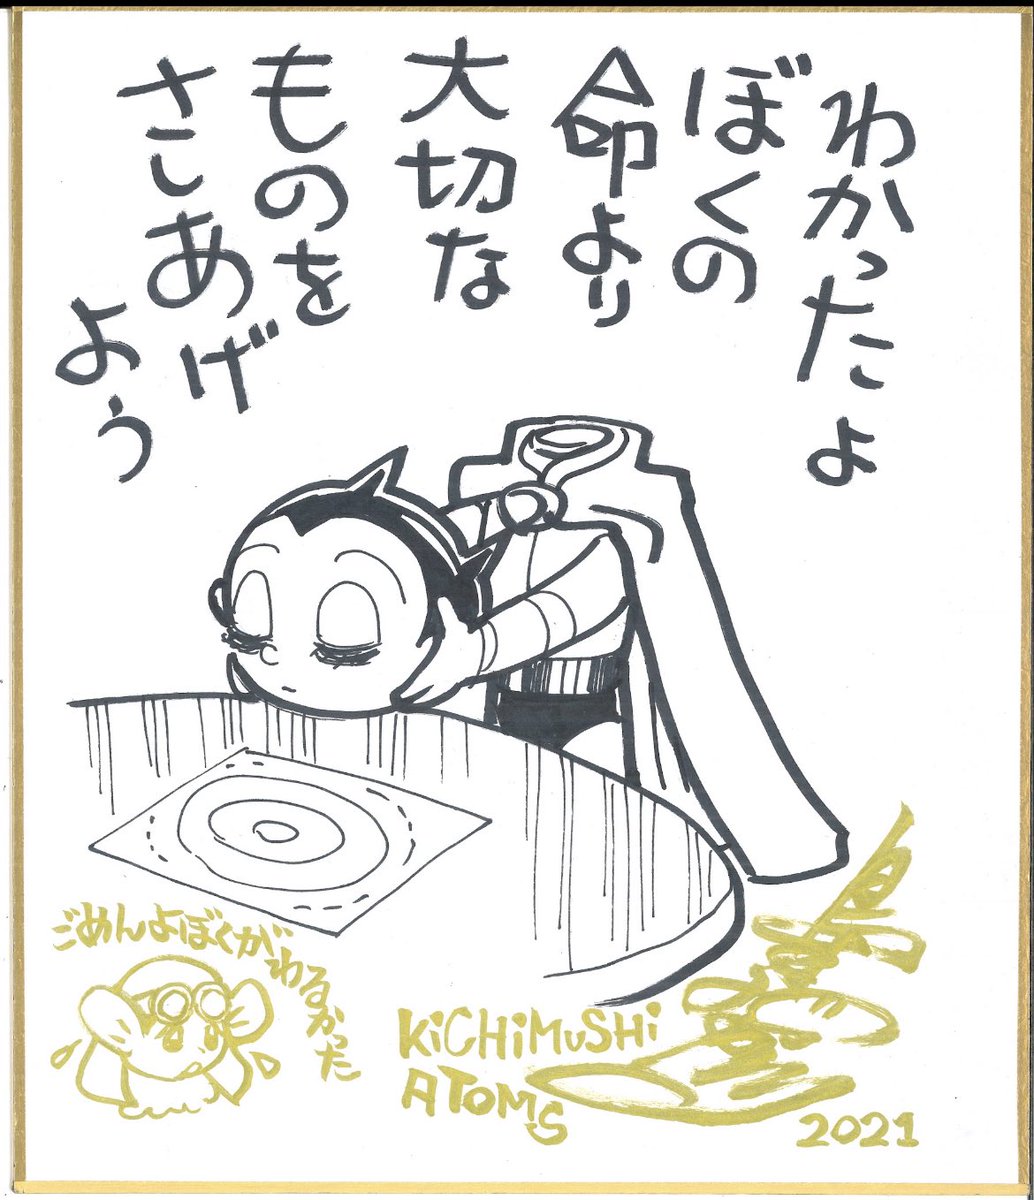 わかったよ
ぼくの
命より
大切な
ものを
さしあげ
よう
ごめんよぼくが
わるかった
KiCHiMuSHi
ATOMS
2021